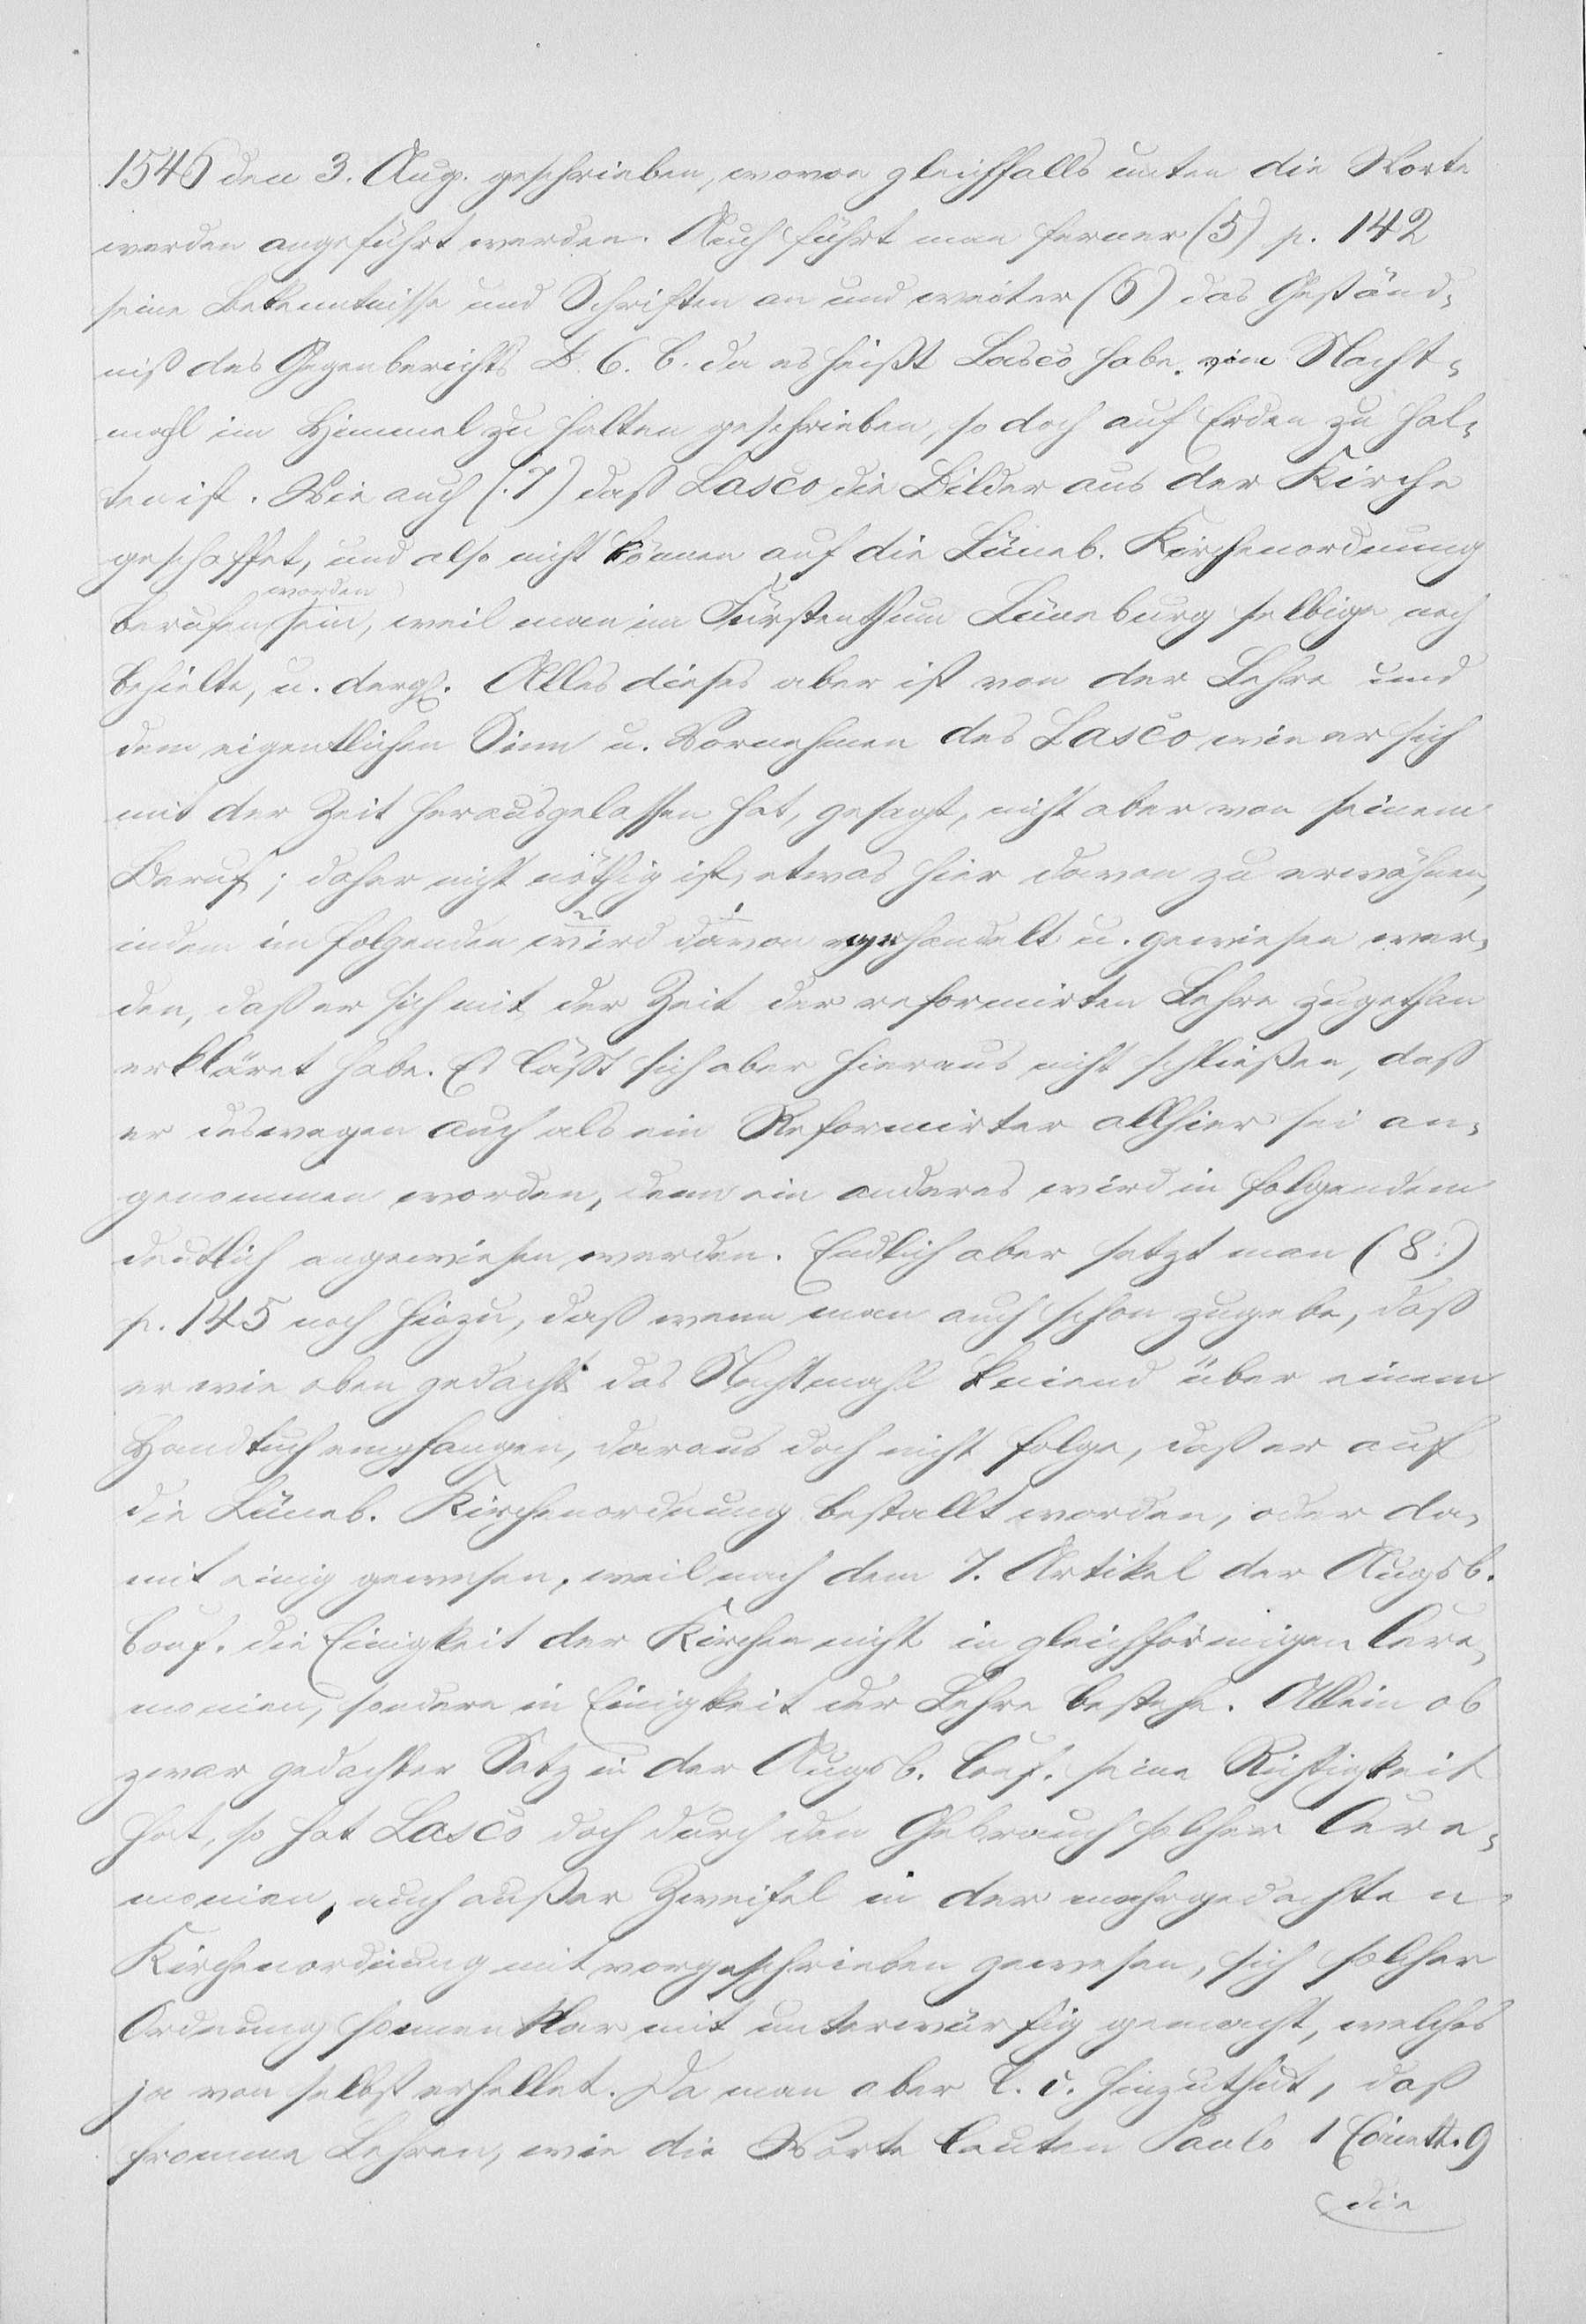 1546 den 3. Aug. geschrieben, wovon gleichfalls unten die Worte
werden angeführt werden. Auch führt man ferner (5) p. 142
seine Bekenntnisse und Schriften an und weiter (6) das Geständ-
niß des Gegenberichts B. 6. b. da es heißt Lasco habe vom Nacht-
mahl im Himmel zu halten geschrieben, so doch auf Erden zu hal-
ten ist. Wie auch (7) daß Lasco die Bilder aus der Kirche
geschaffet, und also nicht können auf die Lüneb. Kirchenordnung
worden
berufen sein, weil man im Fürstenthum Lüneburg selbige noch
behielte, u. dergl. Alles dieses aber ist von der Lehre und
dem eigentlichen Sinn u. Vornehmen des Lasco wie er sich
mit der Zeit herausgelassen hat, gesagt, nicht aber von seinem
Beruf; daher nicht nöthig ist, etwas hier davon zu erwähnen,
2 1
indem im folgenden wird davon gehandelt u. gewiesen wer-
den, daß er sich mit der Zeit der reformirten Lehre zugethan
erkläret habe. Es läßt sich aber hieraus nicht schließen, daß
er deswegen auch als ein Reformirter allhier sei an-
genommen worden, denn ein anderes wird in folgendem
deutlich angewiesen werden. Endlich aber setzt man (8:)
p. 145 noch hinzu, daß wenn man auch schon zugebe, daß
er wie oben gedacht das Nachtmahl kniend über einem
Handtuch empfangen, daraus doch nicht folge, daß er auf
die Lüneb. Kirchenordnung bestallt worden, oder da-
mit einig gewesen, weil nach dem 7. Artikel der Augsb.
Conf. die Einigkeit der Kirchen nicht in gleichförmigen Cere-
monien, sondern in Einigkeit der Lehre bestehe. Allein ob
zwar gedachter Satz in der Augsb. Conf. seine Richtigkeit
hat, so hat Lasco doch durch den Gebrauch solcher Cere-
monien, auch außer Zweifel in der mehrgedachten
Kirchenordnung mit vorgeschrieben gewesen, sich solcher
Ordnung sonnenklar mit unterwürfig gemacht, welches
ja von selbst erhellet. Da man aber l. c. hinzuthut, daß
fromme Lehrer, wie die Worte lauten Paulo 1 Corinth. 9
die